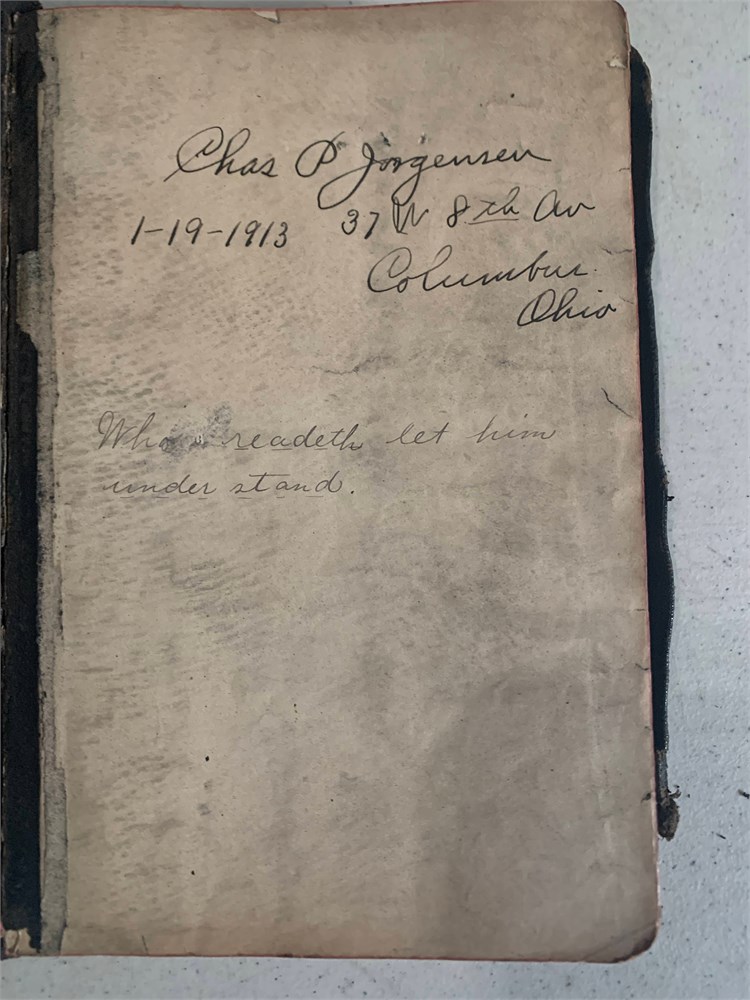 Chas P Jorgensen
1-19-1913 37 W 8th Av
Columbus
Ohio
Who readeth let him
under stand.